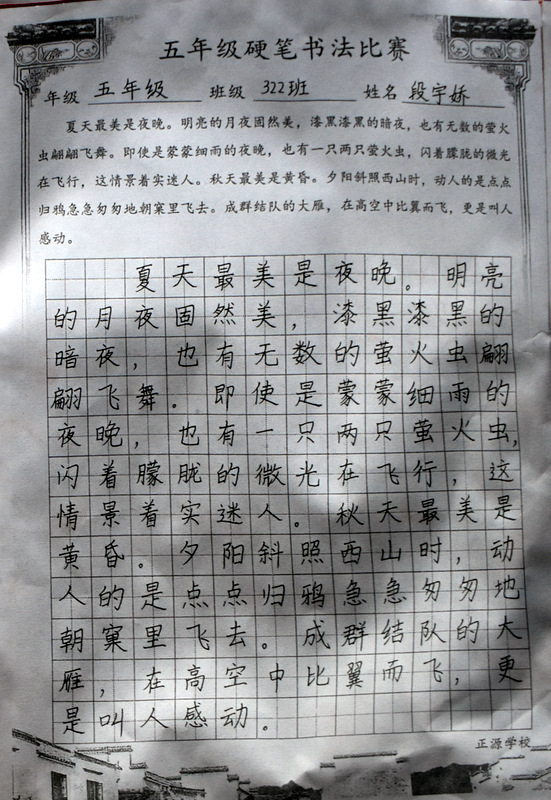 五年级硬笔书法比赛
年级 五年级 班级 322班 姓名 段宇娇
夏天最美是夜晚。明亮的月夜固然美，漆黑漆黑的暗夜，也有无数的萤火
虫翩翩飞舞。即使是蒙蒙细雨的夜晚，也有一只两只萤火虫，闪着朦胧的微光
在飞行，这情景着实迷人。秋天最美是黄昏。夕阳斜照西山时，动人的是点点
归鸦急急匆匆地朝窠里飞去。成群结队的大雁，在高空中比翼而飞，更是叫人
感动。
夏天最美是夜晚。明亮
的月夜固然美，漆黑漆黑的
暗夜，也有无数的萤火虫翩
翩飞舞。即使是蒙蒙细雨的
夜晚，也有一只两只萤火虫，
闪着朦胧的微光在飞行，这
情景着实迷人。秋天最美是
黄昏。夕阳斜照西山时，动
人的是点点归鸦急急匆匆地
朝窠里飞去。成群结队的大
雁，在高空中比翼而飞，更
是叫人感动。
正源学校